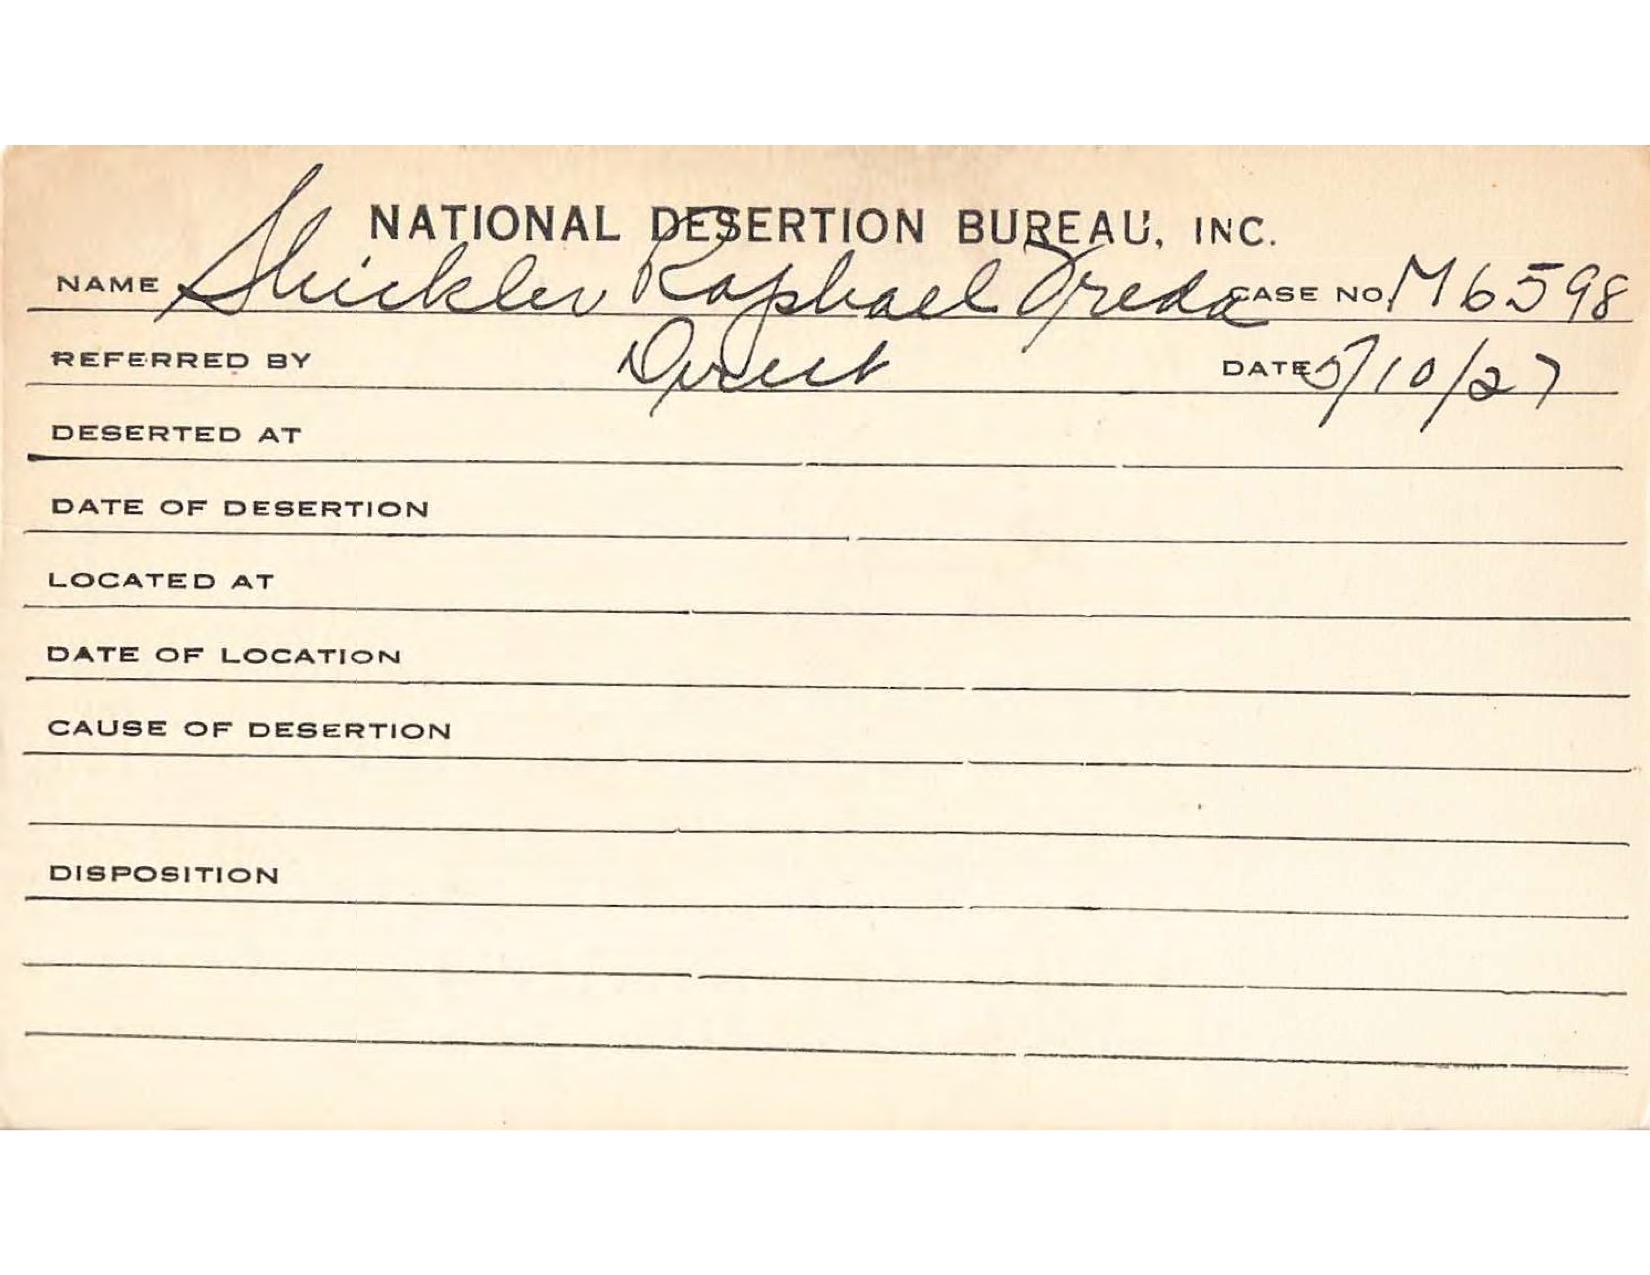 NATIONAL DESERTION BUREAU, INC.
NAME Shickler Raphael Freda CASE NO. M6598
REFERRED BY Direct DATE 5/10/27
DESERTED AT
DATE OF DESERTION
LOCATED AT
DATE OF LOCATION
CAUSE OF DESERTION
DISPOSITION